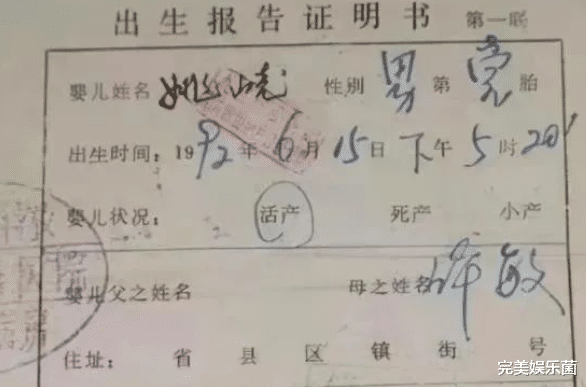 出生报告证明书 第一联
婴儿姓名 姚 性别 男 第 胎
出生时间：1992年6月15日下午5时20'
婴儿状况： 活产 死产 小产
婴儿父之姓名 母之姓名 许敏
住址： 省 县 区 镇 街 号
完美娱乐菌